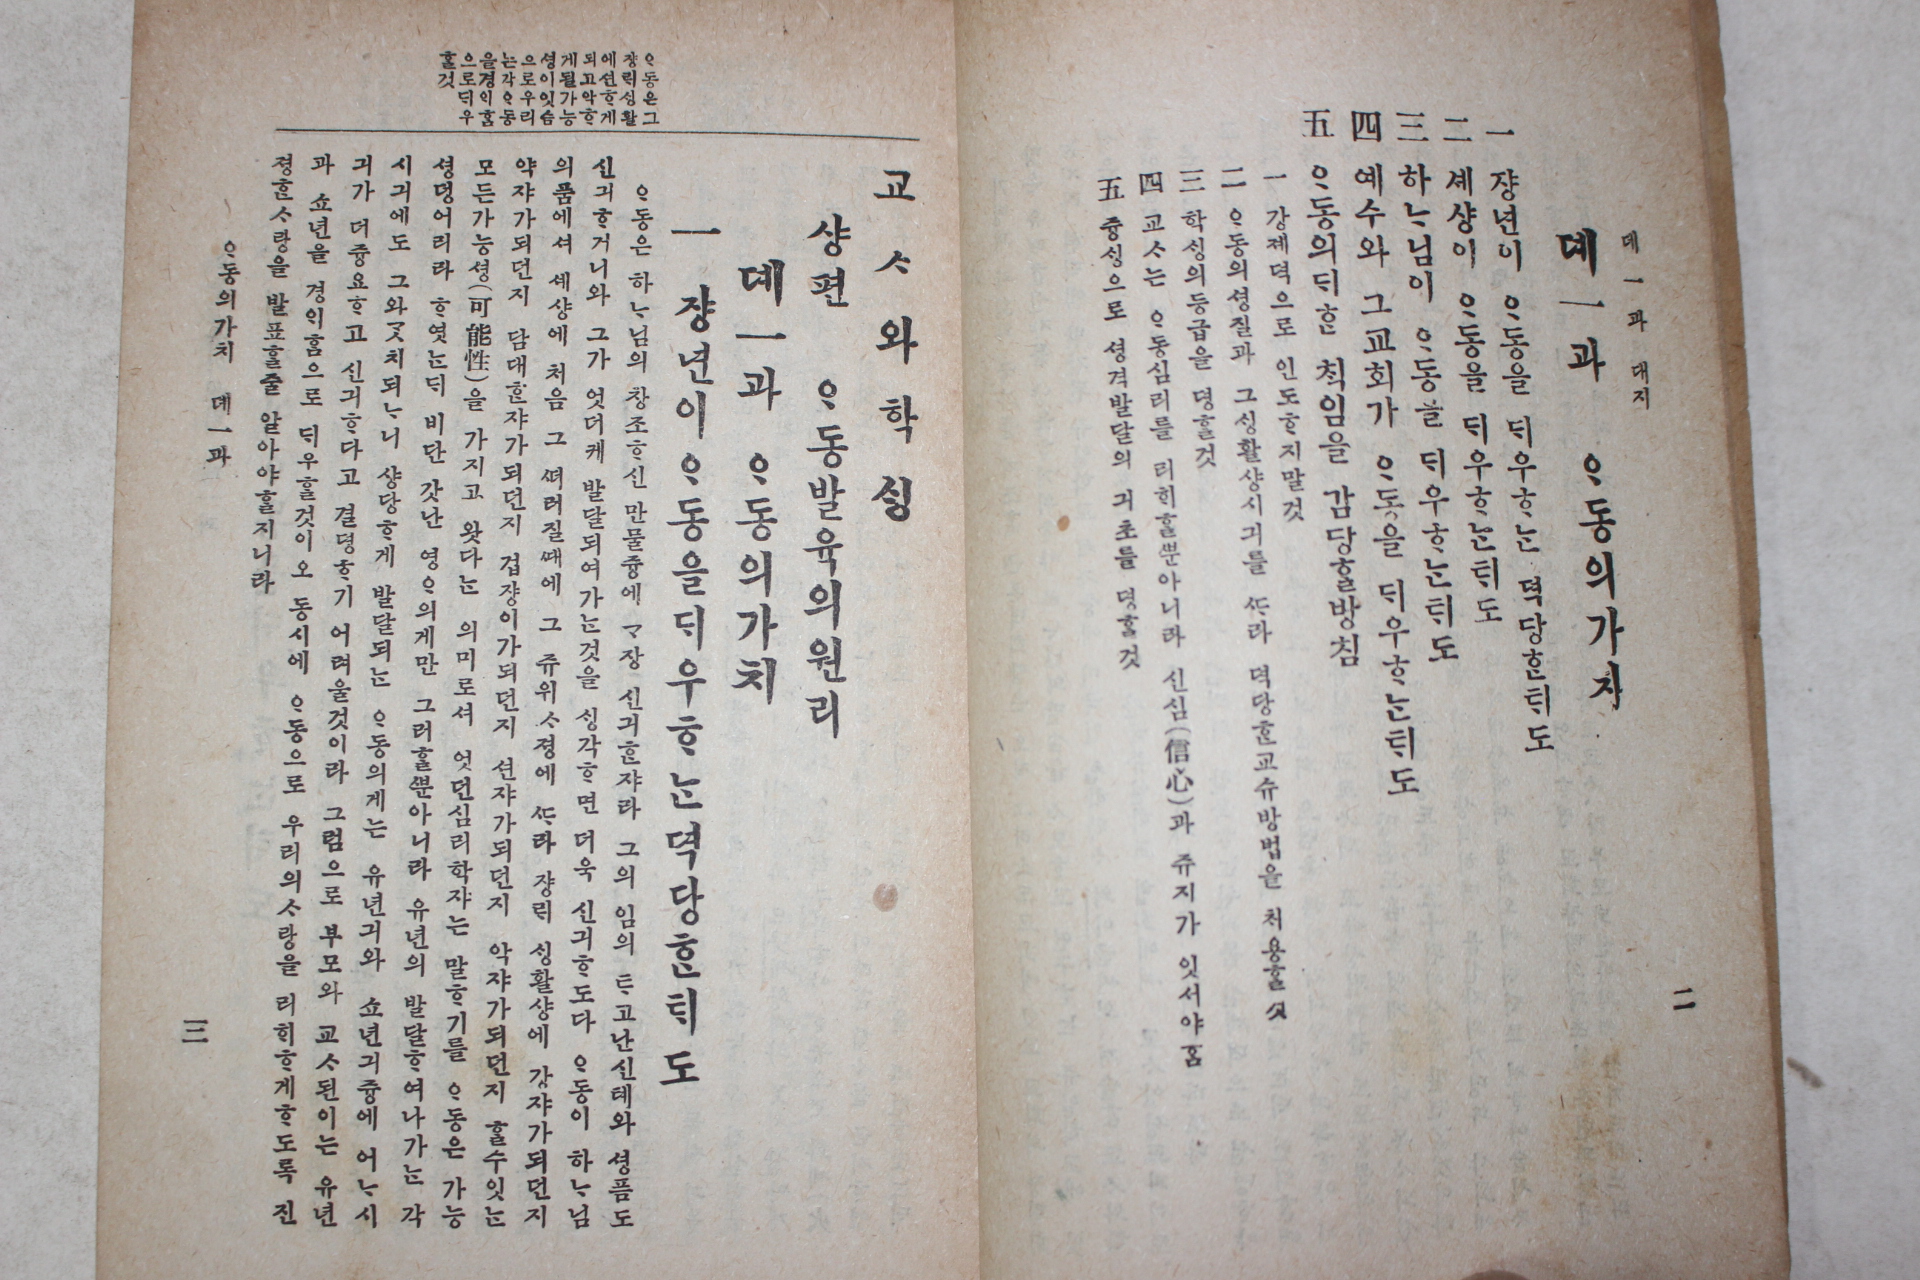 뎨一과 대지
뎨一과 ᄋᆞ동의가치
一 쟝년이 ᄋᆞ동을 ᄃᆡ우ᄒᆞᄂᆞᆫ 덕당ᄒᆞᆫᄐᆡ도
二 셰샹이 ᄋᆞ동을 ᄃᆡ우ᄒᆞᄂᆞᆫᄐᆡ도
三 하ᄂᆞ님이 ᄋᆞ동을 ᄃᆡ우ᄒᆞᄂᆞᆫᄐᆡ도
四 예수와 그교회가 ᄋᆞ동을 ᄃᆡ우ᄒᆞᄂᆞᆫᄐᆡ도
五 ᄋᆞ동의ᄃᆡᄒᆞᆫ 칙임을 감당ᄒᆞᆯ방침
一 강졔덕으로 인도ᄒᆞ지말것
二 ᄋᆞ동의셩질과 그ᄉᆡᆼ활샹시긔를 ᄯᅡ라 덕당ᄒᆞᆫ교슈방법을 처용ᄒᆞᆯ것
三 학ᄉᆡᆼ의등급을 뎡ᄒᆞᆯ것
四 교ᄉᆞ는 ᄋᆞ동심리를 리ᄒᆡᄒᆞᆯᄲᅮᆫ아니라 신심(信心)과 쥬지가 잇서야ᄒᆞᆷ
五 즁심으로 셩격발달의 긔초를 뎡ᄒᆞᆯ것
二
ᄋᆞ동은그
쟝ᄅᆡᄉᆡᆼ활
에션ᄒᆞ게
되고악ᄒᆞ
게될가능
셩이잇슴
으로우리
는각ᄋᆞ동
을경외ᄒᆞᆷ
으로ᄃᆡ우
ᄒᆞᆯ것
교ᄉᆞ와학ᄉᆡᆼ
샹편 ᄋᆞ동발육의원리
뎨一과 ᄋᆞ동의가치
一 쟝년이ᄋᆞ동을ᄃᆡ우ᄒᆞᄂᆞᆫ덕당ᄒᆞᆫᄐᆡ도
ᄋᆞ동은 하ᄂᆞ님의 창조ᄒᆞ신 만물즁에 ᄀᆞ쟝 신긔ᄒᆞᆫ쟈라 그의 임의 ᄐᆞ고난신톄와 셩픔도
신긔ᄒᆞ거니와 그가 엇더케 발달되여가ᄂᆞᆫ것을 ᄉᆡᆼ각ᄒᆞ면 더욱 신긔ᄒᆞ도다 ᄋᆞ동이 하ᄂᆞ님
의품에셔 셰샹에 처음 그 ᄯᅥ러질ᄯᅢ에 그 쥬위ᄉᆞ졍에 ᄯᅡ라 쟝ᄅᆡ ᄉᆡᆼ활샹에 강쟈가되던지
약쟈가되던지 담대ᄒᆞᆫ쟈가되던지 겁쟝이가되던지 션쟈가되던지 악쟈가되던지 ᄒᆞᆯ수잇ᄂᆞᆫ
모든가능셩(可能性)을 가지고 왓다ᄂᆞᆫ 의미로셔 엇던심리학쟈는 말ᄒᆞ기를 ᄋᆞ동은 가능
셩덩어리라 ᄒᆞ엿ᄂᆞᆫᄃᆡ 비단 갓난 영ᄋᆞ의게만 그러ᄒᆞᆯᄲᅮᆫ아니라 유년의 발달ᄒᆞ여나가ᄂᆞᆫ 각
시긔에도 그와ᄀᆞᆺ치되ᄂᆞ니 샹당ᄒᆞ게 발달되ᄂᆞᆫ ᄋᆞ동의게는 유년긔와 쇼년긔즁에 어ᄂᆞ시
긔가 더즁요ᄒᆞ고 신긔ᄒᆞ다고 결뎡ᄒᆞ기 어려울것이라 그럼으로 부모와 교ᄉᆞ된이는 유년
과 쇼년을 경외ᄒᆞᆷ으로 ᄃᆡ우ᄒᆞᆯ것이오 동시에 ᄋᆞ동으로 우리의ᄉᆞ랑을 리ᄒᆡᄒᆞ게ᄒᆞ도록 진
졍ᄒᆞᆫᄉᆞ랑을 발표ᄒᆞᆯ줄 알아야ᄒᆞᆯ지니라
ᄋᆞ동의가치 뎨一과
三